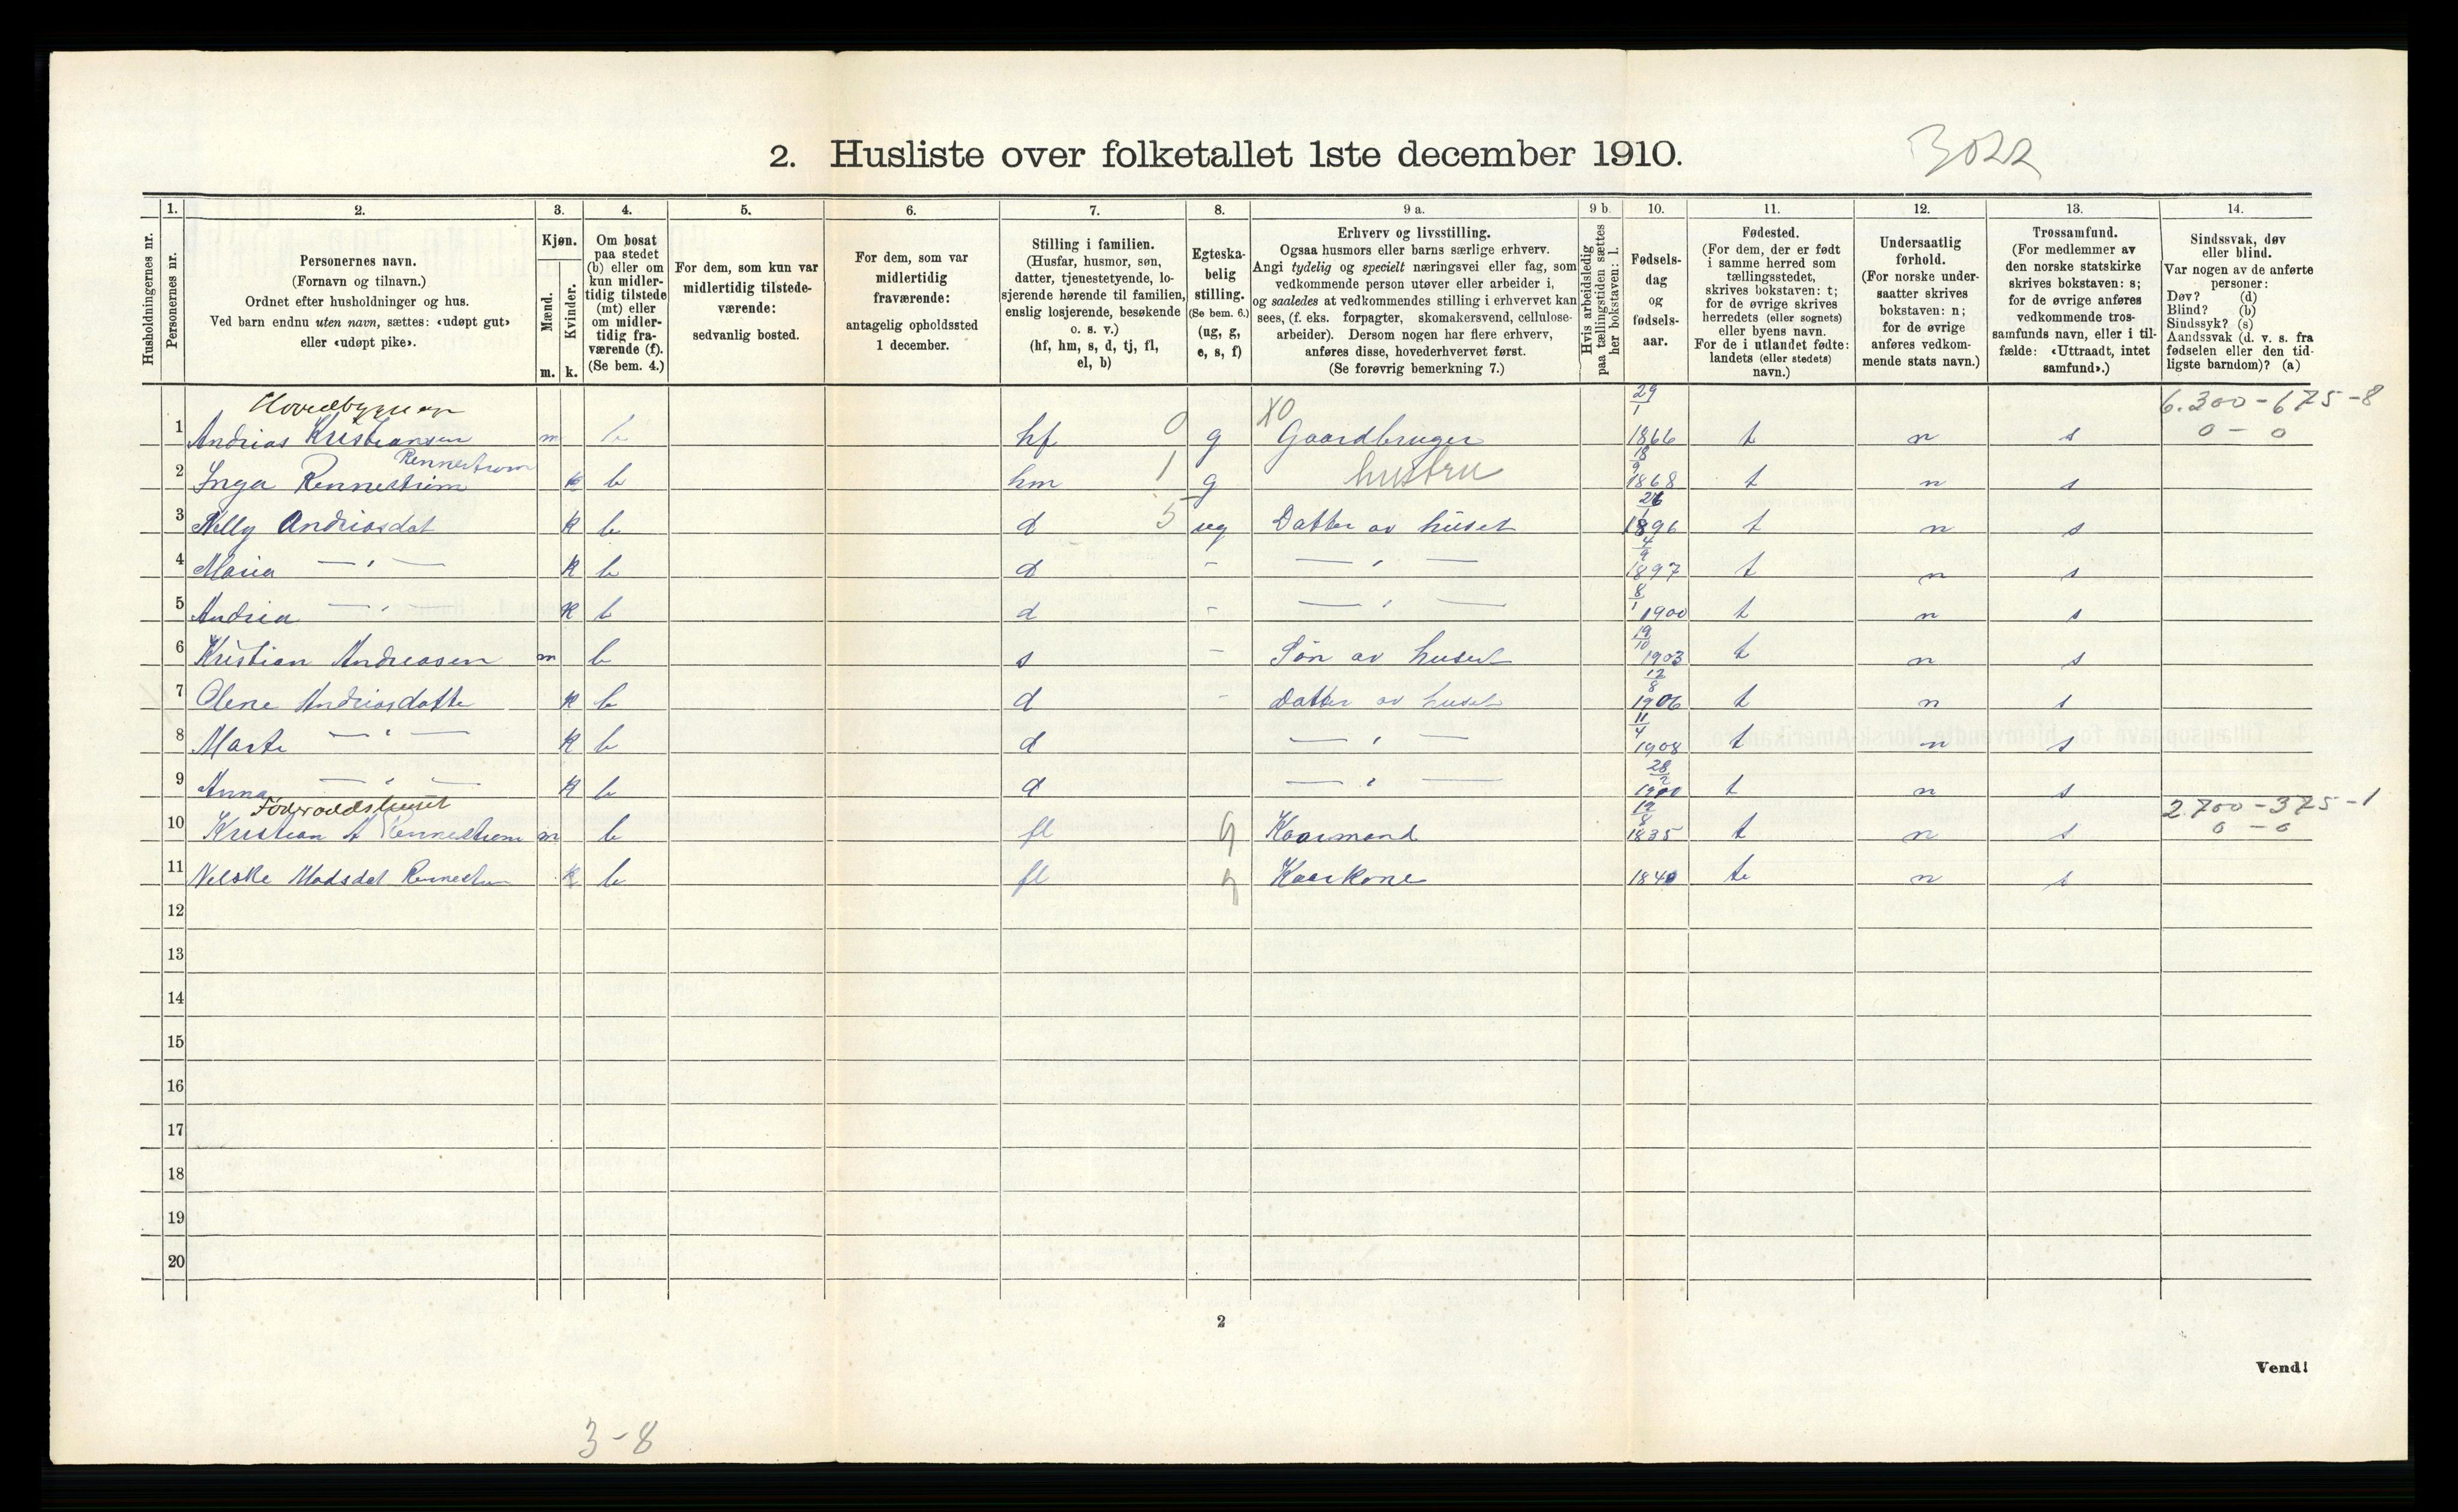 2. Husliste over folketallet 1ste december 1910.
3022
Husholdningernes nr.
1. Personernes nr.
2. Personernes navn.
(Fornavn og tilnavn.)
Ordnet efter husholdninger og hus.
Ved barn endnu uten navn, sættes: «udøpt gut»
eller «udøpt pike».
3. Kjøn.
Mænd. m.
Kvinder. k.
4. Om bosat
paa stedet
(b) eller om
kun midler-
tidig tilstede
(mt) eller
om midler-
tidig fra-
værende (f).
(Se bem. 4.)
5. For dem, som kun var
midlertidig tilstede-
værende:
sedvanlig bosted.
6. For dem, som var
midlertidig
fraværende:
antagelig opholdssted
1 december.
7. Stilling i familien.
(Husfar, husmor, søn,
datter, tjenestetyende, lo-
sjerende hørende til familien,
enslig losjerende, besøkende
o. s. v.)
(hf, hm, s, d, tj, fl,
el, b)
8. Egteska-
belig
stilling.
(Se bem. 6.)
(ug, g,
e, s, f)
9 a. Erhverv og livsstilling.
Ogsaa husmors eller barns særlige erhverv.
Angi tydelig og specielt næringsvei eller fag, som
vedkommende person utøver eller arbeider i,
og saaledes at vedkommendes stilling i erhvervet kan
sees, (f. eks. forpagter, skomakersvend, cellulose-
arbeider). Dersom nogen har flere erhverv,
anføres disse, hovederhvervet først.
(Se forøvrig bemerkning 7.)
9 b. Hvis arbeidsledig
paa tællingstiden sættes
her bokstaven: l.
10. Fødsels-
dag
og
fødsels-
aar.
11. Fødested.
(For dem, der er født
i samme herred som
tællingsstedet,
skrives bokstaven: t;
for de øvrige skrives
herredets (eller sognets)
eller byens navn.
For de i utlandet fødte:
landets (eller stedets)
navn.)
12. Undersaatlig
forhold.
(For norske under-
saatter skrives
bokstaven: n;
for de øvrige
anføres vedkom-
mende stats navn.)
13. Trossamfund.
(For medlemmer av
den norske statskirke
skrives bokstaven: s;
for de øvrige anføres
vedkommende tros-
samfunds navn, eller i til-
fælde: «Uttraadt, intet
samfund».)
14. Sindssvak, døv
eller blind.
Var nogen av de anførte
personer:
Døv? (d)
Blind? (b)
Sindssyk? (s)
Aandssvak (d. v. s. fra
fødselen eller den tid-
ligste barndom)? (a)
Hovedbygningen X0 6.300-675-8
1 Andrias Kristiansen Rennestrøm m b hf 0 g Gaardbruger 29/1 1866 t n s 0 - 0
2 Inga Rennestrøm k b hm 1 g hustru 18/9 1868 t n s
3 Nelly Andriasdat k b d 5 ug Datter av huset 1896 t n s
4 Maria — " — k b d - — " — 4/9 1897 t n s
5 Andrea — " — k b d - — " — 8/1 1900 t n s
6 Kristian Andreasen m b s - Søn av huset 19/10 1903 t n s
7 Olene Andriasdatte k b d - Datter av huset 12/8 1906 t n s
8 Marta — " — k b d — " — 11/4 1908 t n s
9 Anna — " — k b d — " — 28/2 t n s
Føderaadshuset 2.700-375-1
10 Kristian A Rennestrøm m b fl g Kaarmand 19/8 1835 t n s 0 - 0
11 Madsdat Rennestrøm k b fl g Kaarkone 1840 t n s
12
13
14
15
16
17
18
19
20
2
Vend!
3-8